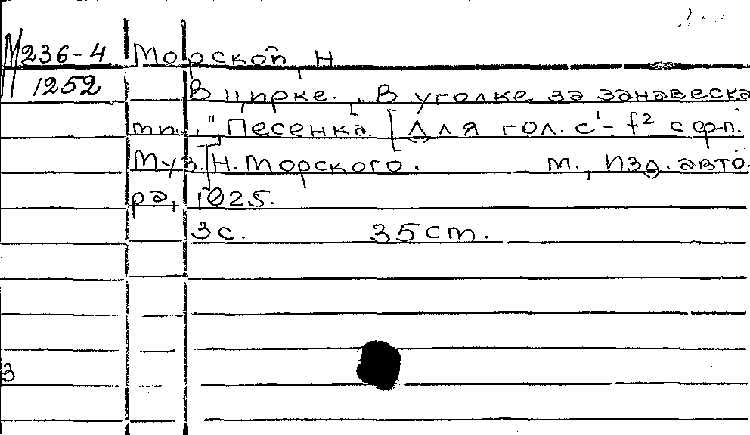 М 236-4 Морской, Н
1252 В цирке. „В уголке за занавеска
ми..." Песенка [Для гол. c¹-f² с фп.
Муз.] Н. Морского. М., Изд. авто
ра, 1925.
3 с. 35 см.
3